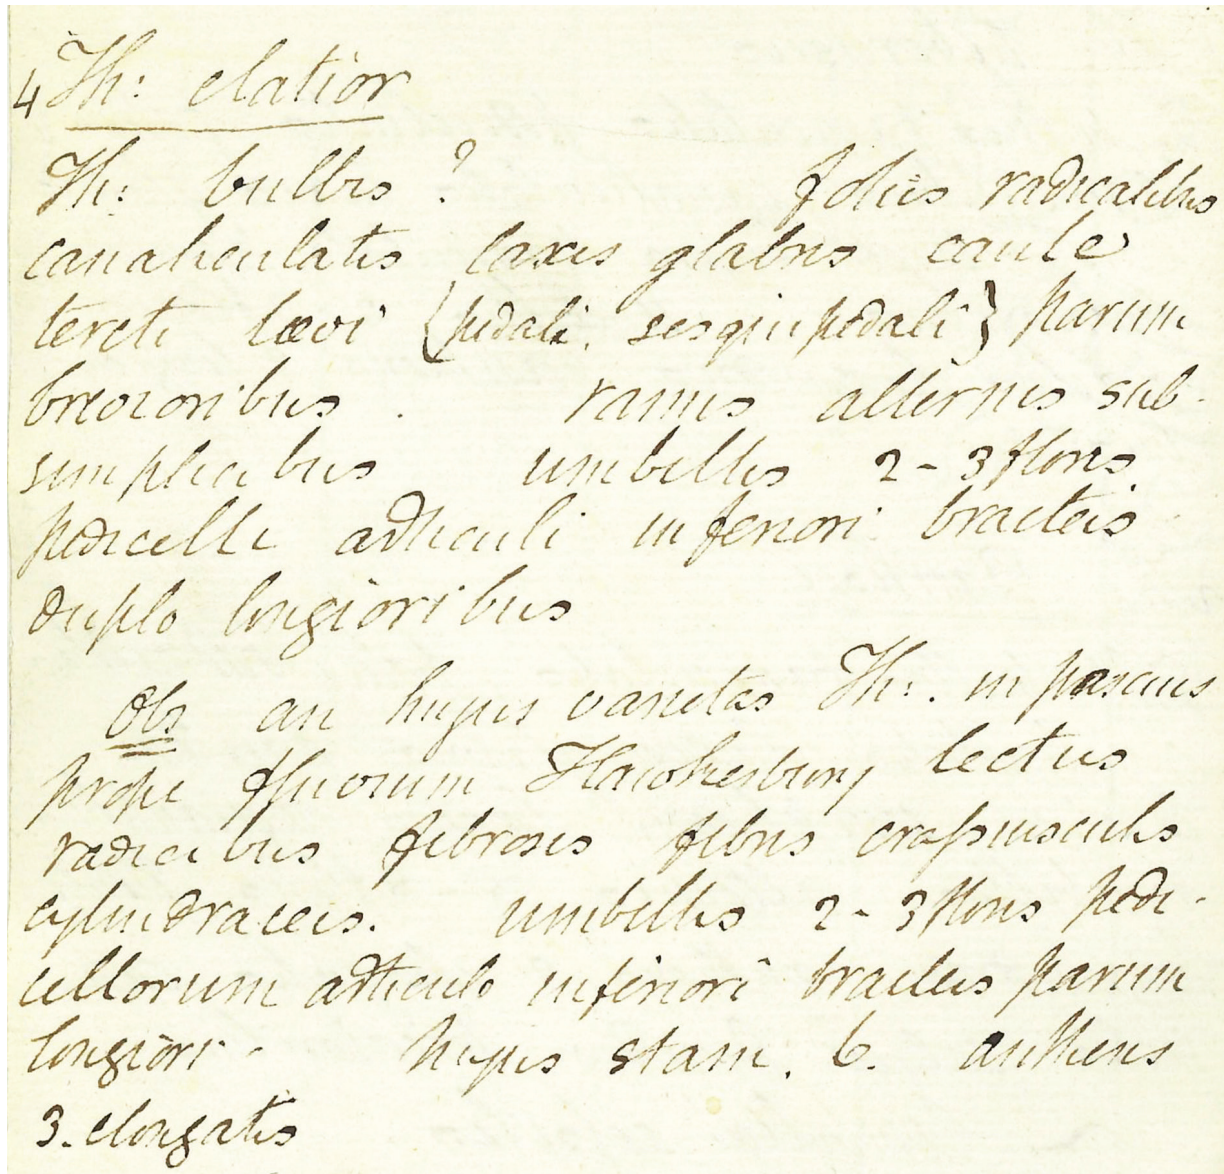 4 Th: elatior
Th: bulbis ? foliis radicalibus
canaliculatis laxis glabris caule
tereti lævi {pedali. sesquipedali} parum
brevioribus . ramis alternis sub-
simplicibus umbellis 2-3 floris
pedicelli articuli inferiori bracteis
duplo longioribus
Obs an hujus varietas Th:. in pascuis
prope fluvium Hawkesbury lectus
radicibus fibrosis fibris crassiusculis
cylindraceis. umbellis 2-3 floris pedi-
cellorum articulo inferiori bracteis parum
longiori - hujus stam. 6. antheris
3. elongatis